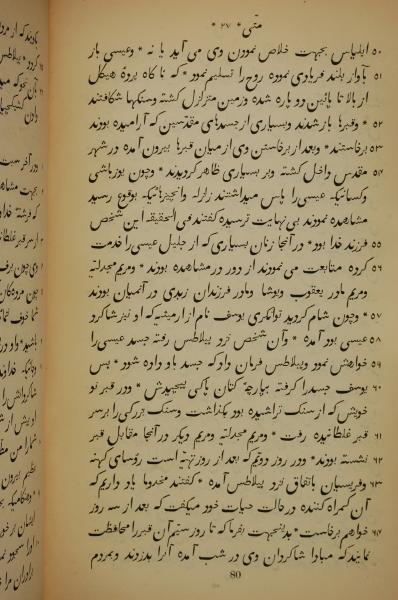 متّی * ۲۷ *
ایلیاس بجهت خلاص نمودن وی می آید یا نه * وعیسی باز ۵۰
بآواز بلند فریادی نموده روح را تسلیم نمود * که ناکاه پردهٔ هیکل ۵۱
از بالا تا پائین دو پاره شده وزمین متزلزل کشته وسنکها شکافتند
* وقبرها باز شدند وبسیاری از جسدهای مقدّسین که آرامیده بودند ۵۲
برخاستند * وبعد از برخاستن وی از میان قبرها بیرون آمده در شهر ۵۳
مقدس داخل کشته وبر بسیاری ظاهر کردیدند * وچون یوزباشی ۵۴
وکسانیکه عیسی را پاس میداشتند زلزله وآنچیزهائیکه بوقوع رسید
مشاهده نمودند بی نهایت ترسیده کفتند فی الحقیقه این شخص
فرزند خدا بود * در آنجا زنان بسیاری که از جلیل عیسی را خدمت ۵۵
کرده متابعت می نمودند از دور در مشاهده بودند * ومریم مجدلیّه ۵۶
ومریم مادر یعقوب ویوشا ومادر فرزندان زبدی در آنمیان بودند
* وچون شام کردید توانکری یوسف نام از ارمیثیه که او نیز شاکرد ۵۷
عیسی بود آمده * وآن شخص نزد پیلاطس رفته جسد عیسی را ۵۸
خواهش نمود وپیلاطس فرمان داد که جسد باو داده شود * پس ۵۹
یوسف جسد را کرفته بپارچهٔ کتان پاکی پیچیدش * ودر قبر نو ۶۰
خویش که از سنک تراشیده بود بکذاشت وسنک بزرکی را بر سر
قبر غلطانیده رفت * ومریم مجدلیّه ومریم دیکر در آنجا مقابل قبر ۶۱
نشسته بودند * ودر روز دویّم که بعد از روز تهیّه است رؤسای کهنه ۶۲
وفریسیان باتفاق نزد پیلاطس آمده * کفتند مخدوما یاد داریم که ۶۳
آن کمراه کننده در حالت حیات خود میکفت که بعد از سه روز
خواهم برخاست * بدینجهت بفرما که تا روز سیّم آن قبر را محافظت ۶۴
نمایند که مبادا شاکردان وی در شب آمده آنرا بدزدند وبمردم
80